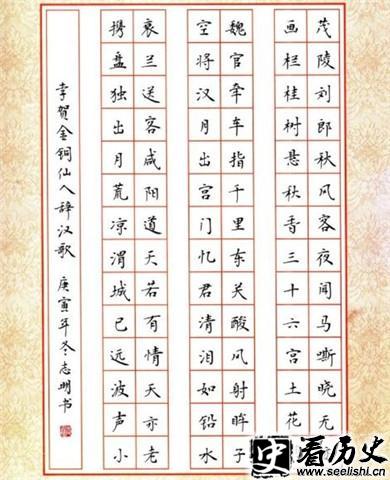 茂陵刘郎秋风客夜闻马嘶晓无
画栏桂树悬秋香三十六宫土花
魏官牵车指千里东关酸风射眸子
空将汉月出宫门忆君清泪如铅水
衰兰送客咸阳道天若有情天亦老
携盘独出月荒凉渭城已远波声小
李贺金铜仙人辞汉歌 庚寅年冬志明书
史 看历史
www.seelishi.cn